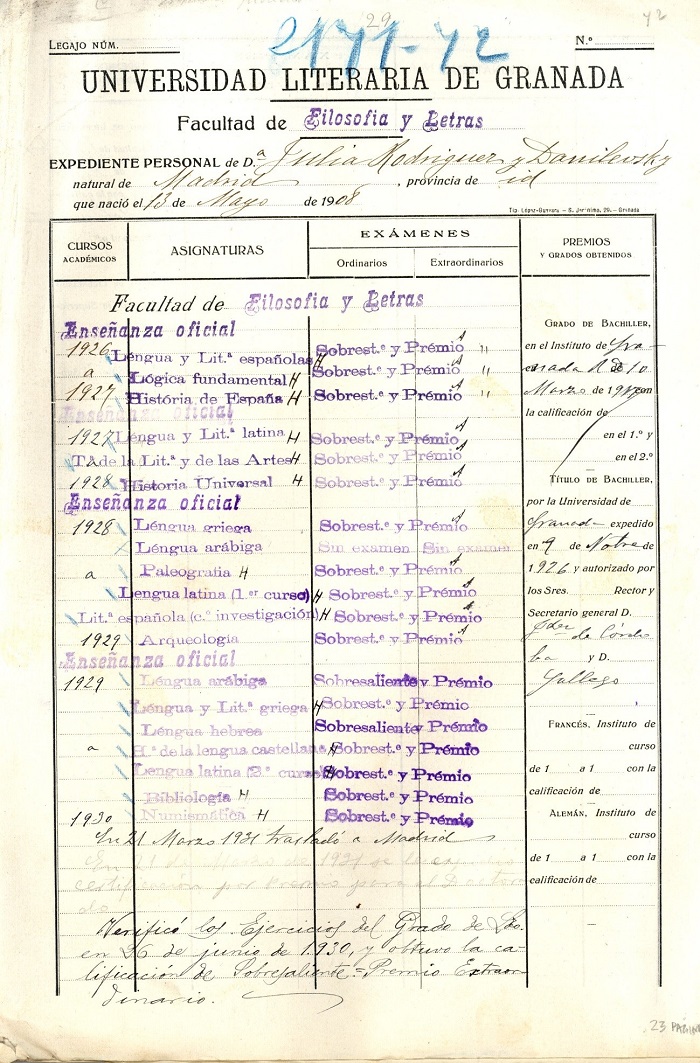 29
42
LEGAJO NÚM.
2171-42
N.º
UNIVERSIDAD LITERARIA DE GRANADA
Facultad de Filosofia y Letras
EXPEDIENTE PERSONAL de D.ª Julia Rodriguez y Danilevsky
natural de Madrid, provincia de id
que nació el 13 de Mayo de 1908
Tip. López-Guevara – S. Jerónimo, 29. – Granada
CURSOS ACADÉMICOS
ASIGNATURAS
EXÁMENES
Ordinarios
Extraordinarios
PREMIOS
Y GRADOS OBTENIDOS
Facultad de Filosofia y Letras
Enseñanza oficial
1926 Léngua y Lit.ª españolas H Sobrest.e y Prémio A "
a Lógica fundamental H Sobrest.e y Prémio A "
1927 História de España H Sobrest.e y Prémio A "
Enseñanza oficial
1927 Léngua y Lit.ª latina H Sobrest.e y Prémio A
a T.ª de la Lit.ª y de las Artes H Sobrest.e y Prémio A
1928 Historia Universal H Sobrest.e y Prémio A
Enseñanza oficial
1928 Léngua griega Sobrest.e y Prémio A
Léngua arábiga Sin examen Sin examen
a Paleografia H Sobrest.e y Prémio A
Lengua latina (1.er curso) H Sobrest.e y Prémio A
Lit.ª española (c.º investigación) H Sobrest.e y Prémio A
1929 Arqueología Sobrest.e y Prémio A
Enseñanza oficial
1929 Léngua arábiga Sobresaliente y Prémio
Léngua y Lit.ª griega H Sobrest.e y Prémio
Léngua hebrea Sobresaliente y Prémio
a H.ª de la lengua castellana H Sobrest.e y Prémio
Lengua latina (2.º curso) H Sobrest.e y Prémio
Bibliología H Sobrest.e y Prémio
1930 Numismática H Sobrest.e y Prémio
En 21 Marzo 1931 trasladó a Madrid
Verificó los Ejercicios del Grado de Ldo.
en 26 de junio de 1.930, y obtuvo la ca-
lificación de Sobresaliente = Premio Extraor
dinario.
GRADO DE BACHILLER,
en el Instituto de Gra-
nada el 10
Marzo de 19 con
la calificación de
en el 1.º y
en el 2.º
TÍTULO DE BACHILLER,
por la Universidad de
Granada expedido
en 9 de Novbre de
1926 y autorizado por
los Sres. Rector y
Secretario general D.
de Córdo
ba y D.
Gallego
FRANCÉS, Instituto de
curso
de 1 a 1 con la
calificación de
ALEMÁN, Instituto de
curso
de 1 a 1 con la
calificación de
23 PÁGINAS